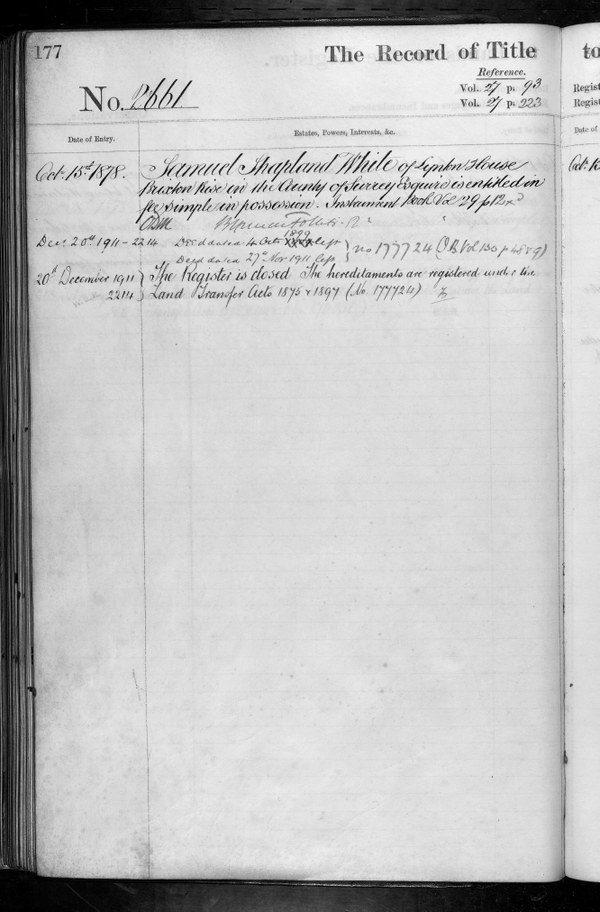 177
The Record of Title
to
Reference.
Vol. 27 p. 93
Vol. 27 p. 223
No. 2661
Regist
Regist
Date of Entry.
Estates, Powers, Interests, &c.
Date of
Oct. 15th 1878.
Samuel Shapland White of Lynton House
Brixton Rise in the County of Surrey Esquire is entitled in
fee simple in possession. Instrument Book Vol 29 p 12
1899
Dec. 20th 1911 - 2214
Deed dated 4 Oct. left
Deed dated 27th Nov 1911 left
no 177724 (I B Vol 130 p 48 & 9)
20th December 1911
2214
The Register is closed The hereditaments are registered under the
Land Transfer Acts 1875 & 1897 (No. 177724)